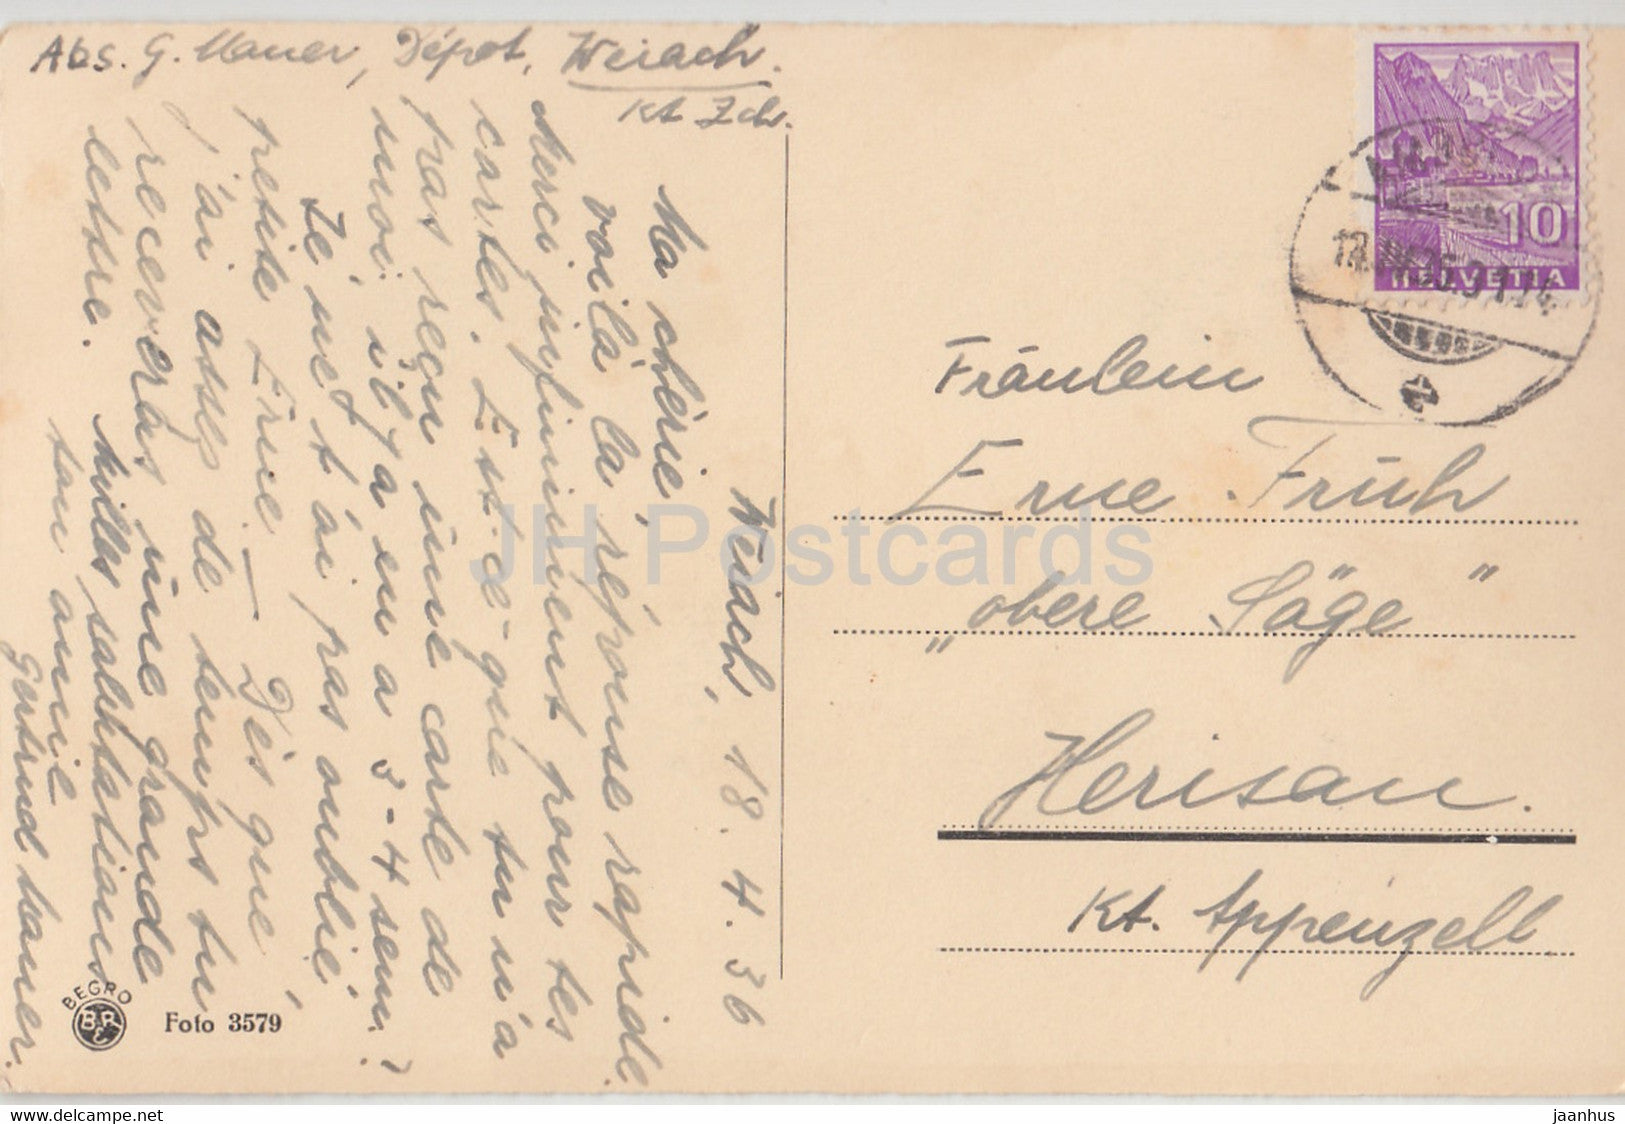 Abs. G. Maurer, Dépot, Weiach.
Kt. Zch.
Weiach, 18. 4. 36
Ma chérie,
voilà la réponse rapide.
Merci infiniment pour tes
cartes. Est-ce-que tu n'a
pas reçu une carte de
moi il y a en a 3-4 sem.?
Je ne t'ai pas oublié
petite Erne. — Dès que
j'ai assez de temps tu
receveras une grande
lettre. Milles salutations
ton amie
Gertrud Maurer.
Fräulein
Erne Früh
„obere Säge"
Herisau.
Kt. Appenzell
10
HELVETIA
BEGRO
Foto 3579
JH Postcards
www.delcampe.net
jaanhus